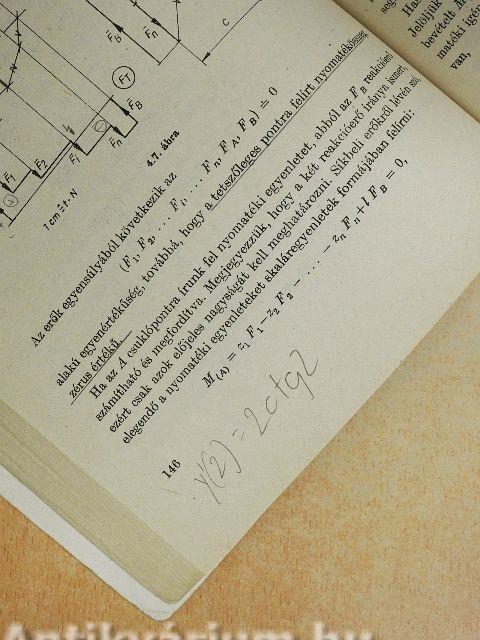 F_B
F_n
c
F_T
F_1
F_2
F_i
F_n
F_B
1 cm ≙ t · N
4.7. ábra
Az erők egyensúlyából következik az
(F_1, F_2, ... F_i, ... F_n, F_A, F_B) = 0
alakú egyenértékűség, továbbá, hogy a tetszőleges pontra felírt nyomatékösszeg
zérus értékű.
Ha az A csuklópontra írunk fel nyomatéki egyenletet, abból az F_B reakcióerő
számítható és megfordítva. Megjegyezzük, hogy a két reakcióerő iránya ismert,
ezért csak azok előjeles nagyságát kell meghatározni. Síkbeli erőkről lévén szó,
elegendő a nyomatéki egyenleteket skaláregyenletek formájában felírni:
M_(A) = z_1 F_1 - z_2 F_2 - ... - z_n F_n + l F_B = 0,
146
y'(2) = 2ctg2
Ha
Jelöljük
bevételt
matéki
van,
Antikvárium.hu